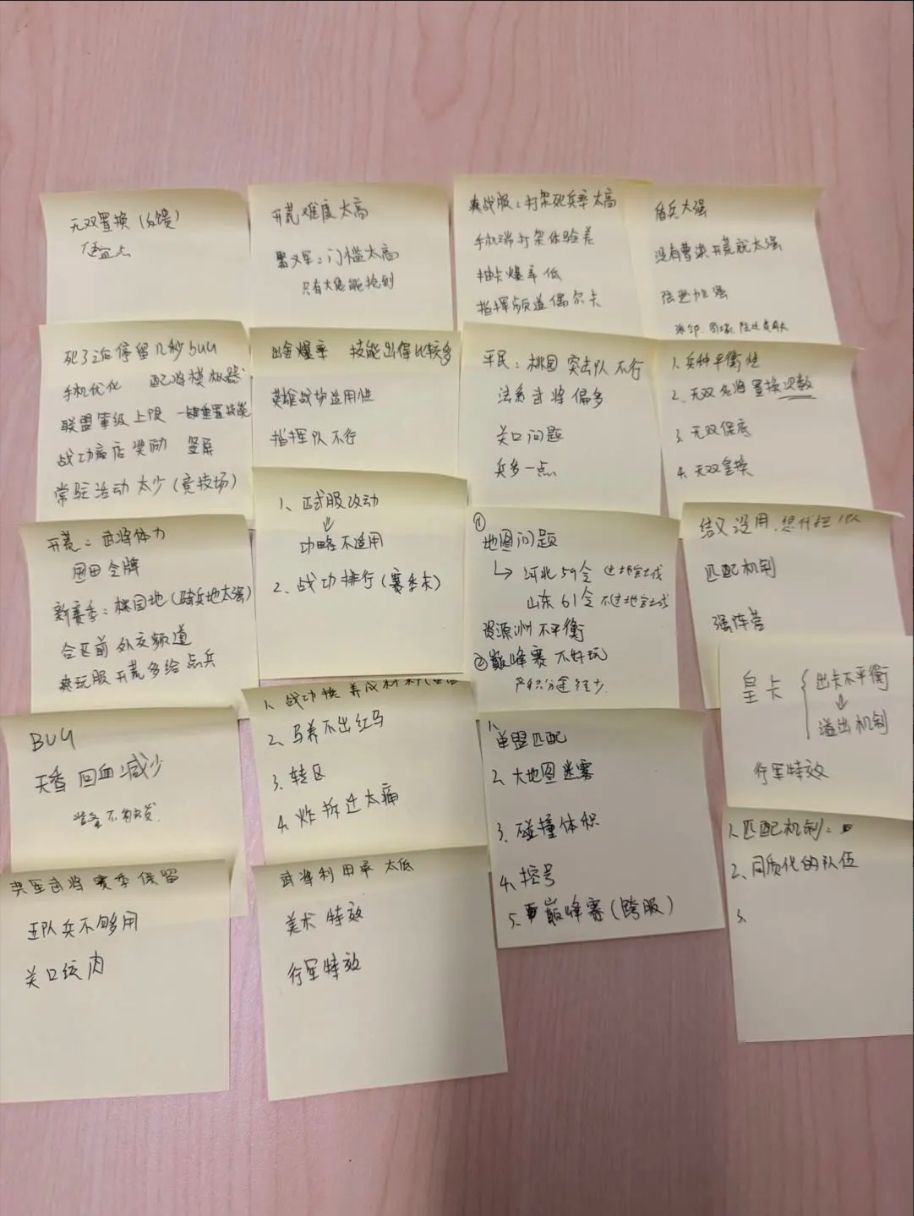 无双置换(反馈)
开荒难度太高
门槛太高
只有大佬能抢到
爽战服:打架死兵率太高
手机端打架体验差
抽卡爆率低
指挥频道偶尔卡
盾兵太强
没有曹操开荒就太强
张
死了之后停留几秒BUU
手机优化 配将模拟器
联盟等级上限 一键重置技能
战功商店奖励 竖屏
常驻活动太少(竞技场)
出金爆率 技能出得比较多
英雄战护适用性
指挥队不行
平民:桃园突击队不行
法系武将偏多
关口问题
兵多一点
1.兵种平衡性
2.无双允将置换次数
3.无双保底
4.无双置换
开荒:武将体力
屯田令牌
新赛季:桃园地(骑兵地太强)
合区前外交频道
爽玩服开荒多给点兵
1、正式服改动
↓
功略不适用
2.战功排行(赛季末)
①
地图问题
↳ 河北59仓
山东61仓
资源州不平衡
②巅峰赛不好玩
结义没用
匹配机制
强阵营
皇卡
出卡不平衡
↓
溢出机制
行军特效
BUU
天香回血减少
1.战功换养成材料
2.马养不出红马
3.转区
4.炸拆迁太痛
1.单盟匹配
2.大地图迷雾
3.碰撞体积
4.控号
5.巅峰赛(跨服)
1.匹配机制:
2.同质化的队伍
3.
武将赛季保留
五队兵不够用
关口
武将利用率太低
美术特效
行军特效